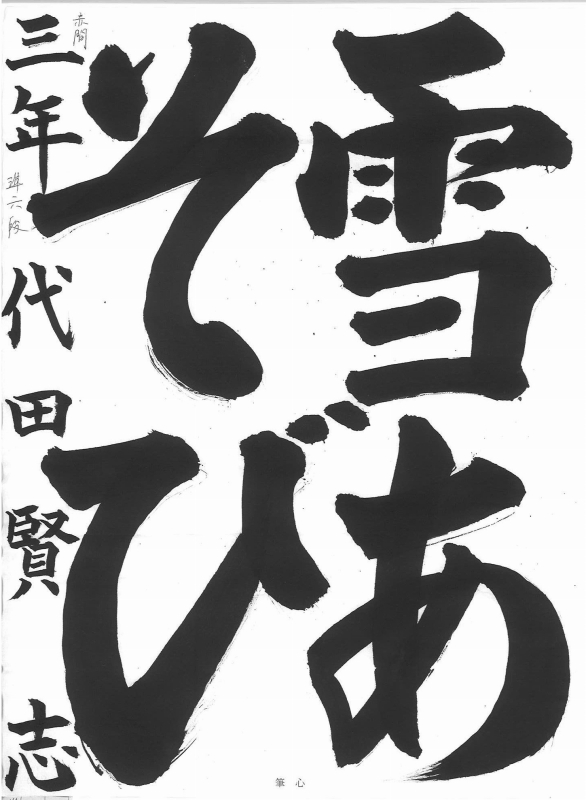 雪あ
そび
赤間
三年 準六段 代田賢志
心筆